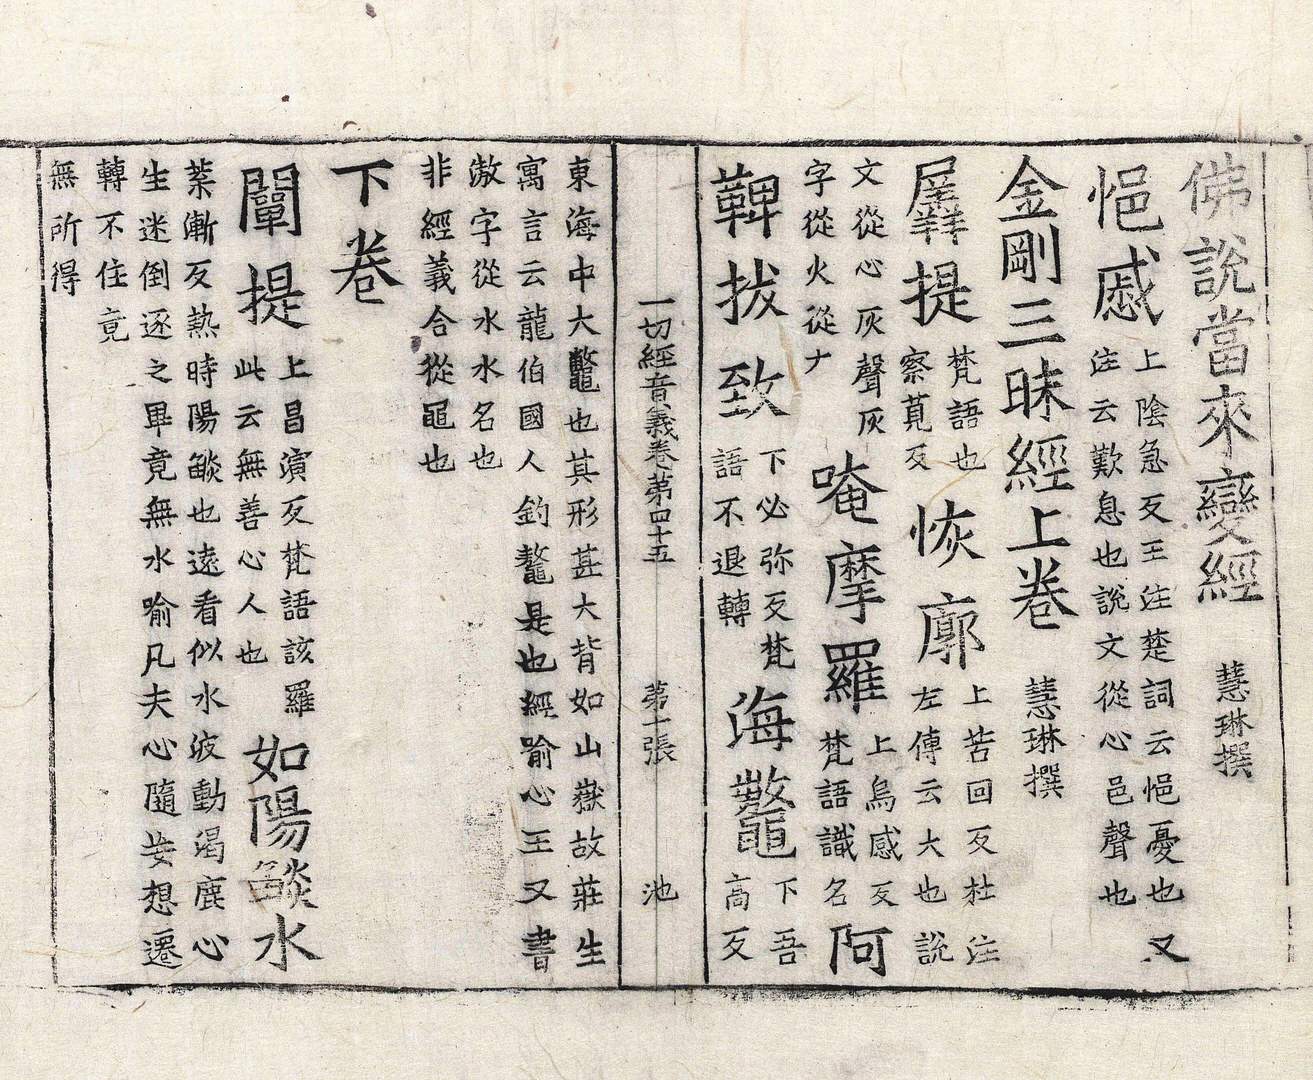 佛說當來變經 慧琳撰
悒慼 上陰急反王注楚詞云悒憂也又
注云歎息也說文從心邑聲也
金剛三昧經上卷 慧琳撰
羼提 梵語也
察莧反 恢廓 上苦回反杜注
左傳云大也說
文從心灰聲灰
字從火從ナ 唵摩羅 上烏感反
梵語識名 阿
鞞拔致 下必弥反梵
語不退轉 海鼇 下吾
高反
一切經音義卷第四十五 第一張 池
東海中大鼈也其形甚大背如山嶽故莊生
寓言云龍伯國人釣鼇是也經喻心王又書
滶字從水水名也
非經義合從黽也
下卷
闡提 上昌演反梵語該羅
此云無善心人也 如陽燄水
葉漸反熱時陽燄也遠看似水波動渴鹿心
生迷倒逐之畢竟無水喻凡夫心隨妄想遷
轉不住竟
無所得